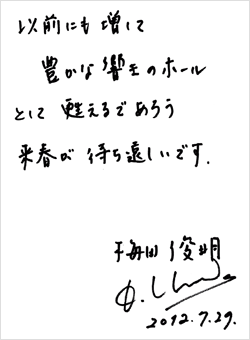 以前にも増して
豊かな響きのホール
として 甦えるであろう
来春が 待ち遠しいです.
梅田俊明
2012.7.29.